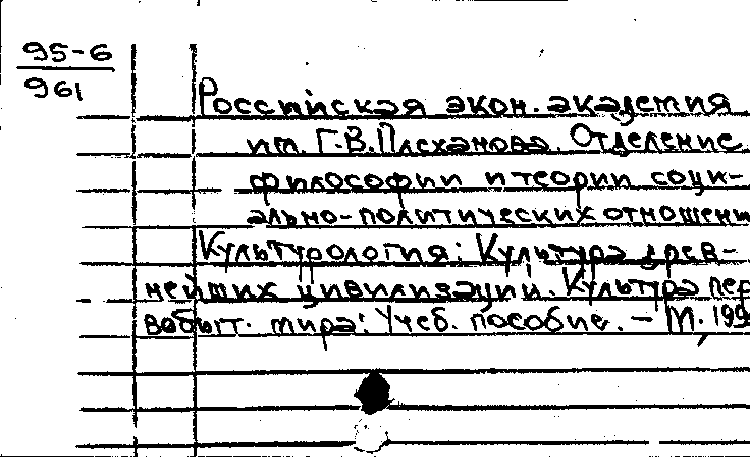 95-6
961
Российская экон. академия
им. Г.В. Плеханова. Отделение
философии и теории соци-
ально-политических отношени
Культурология: Культура древ-
нейших цивилизации. Культура пер
вобыт. мира: Учеб. пособие. – М, 199